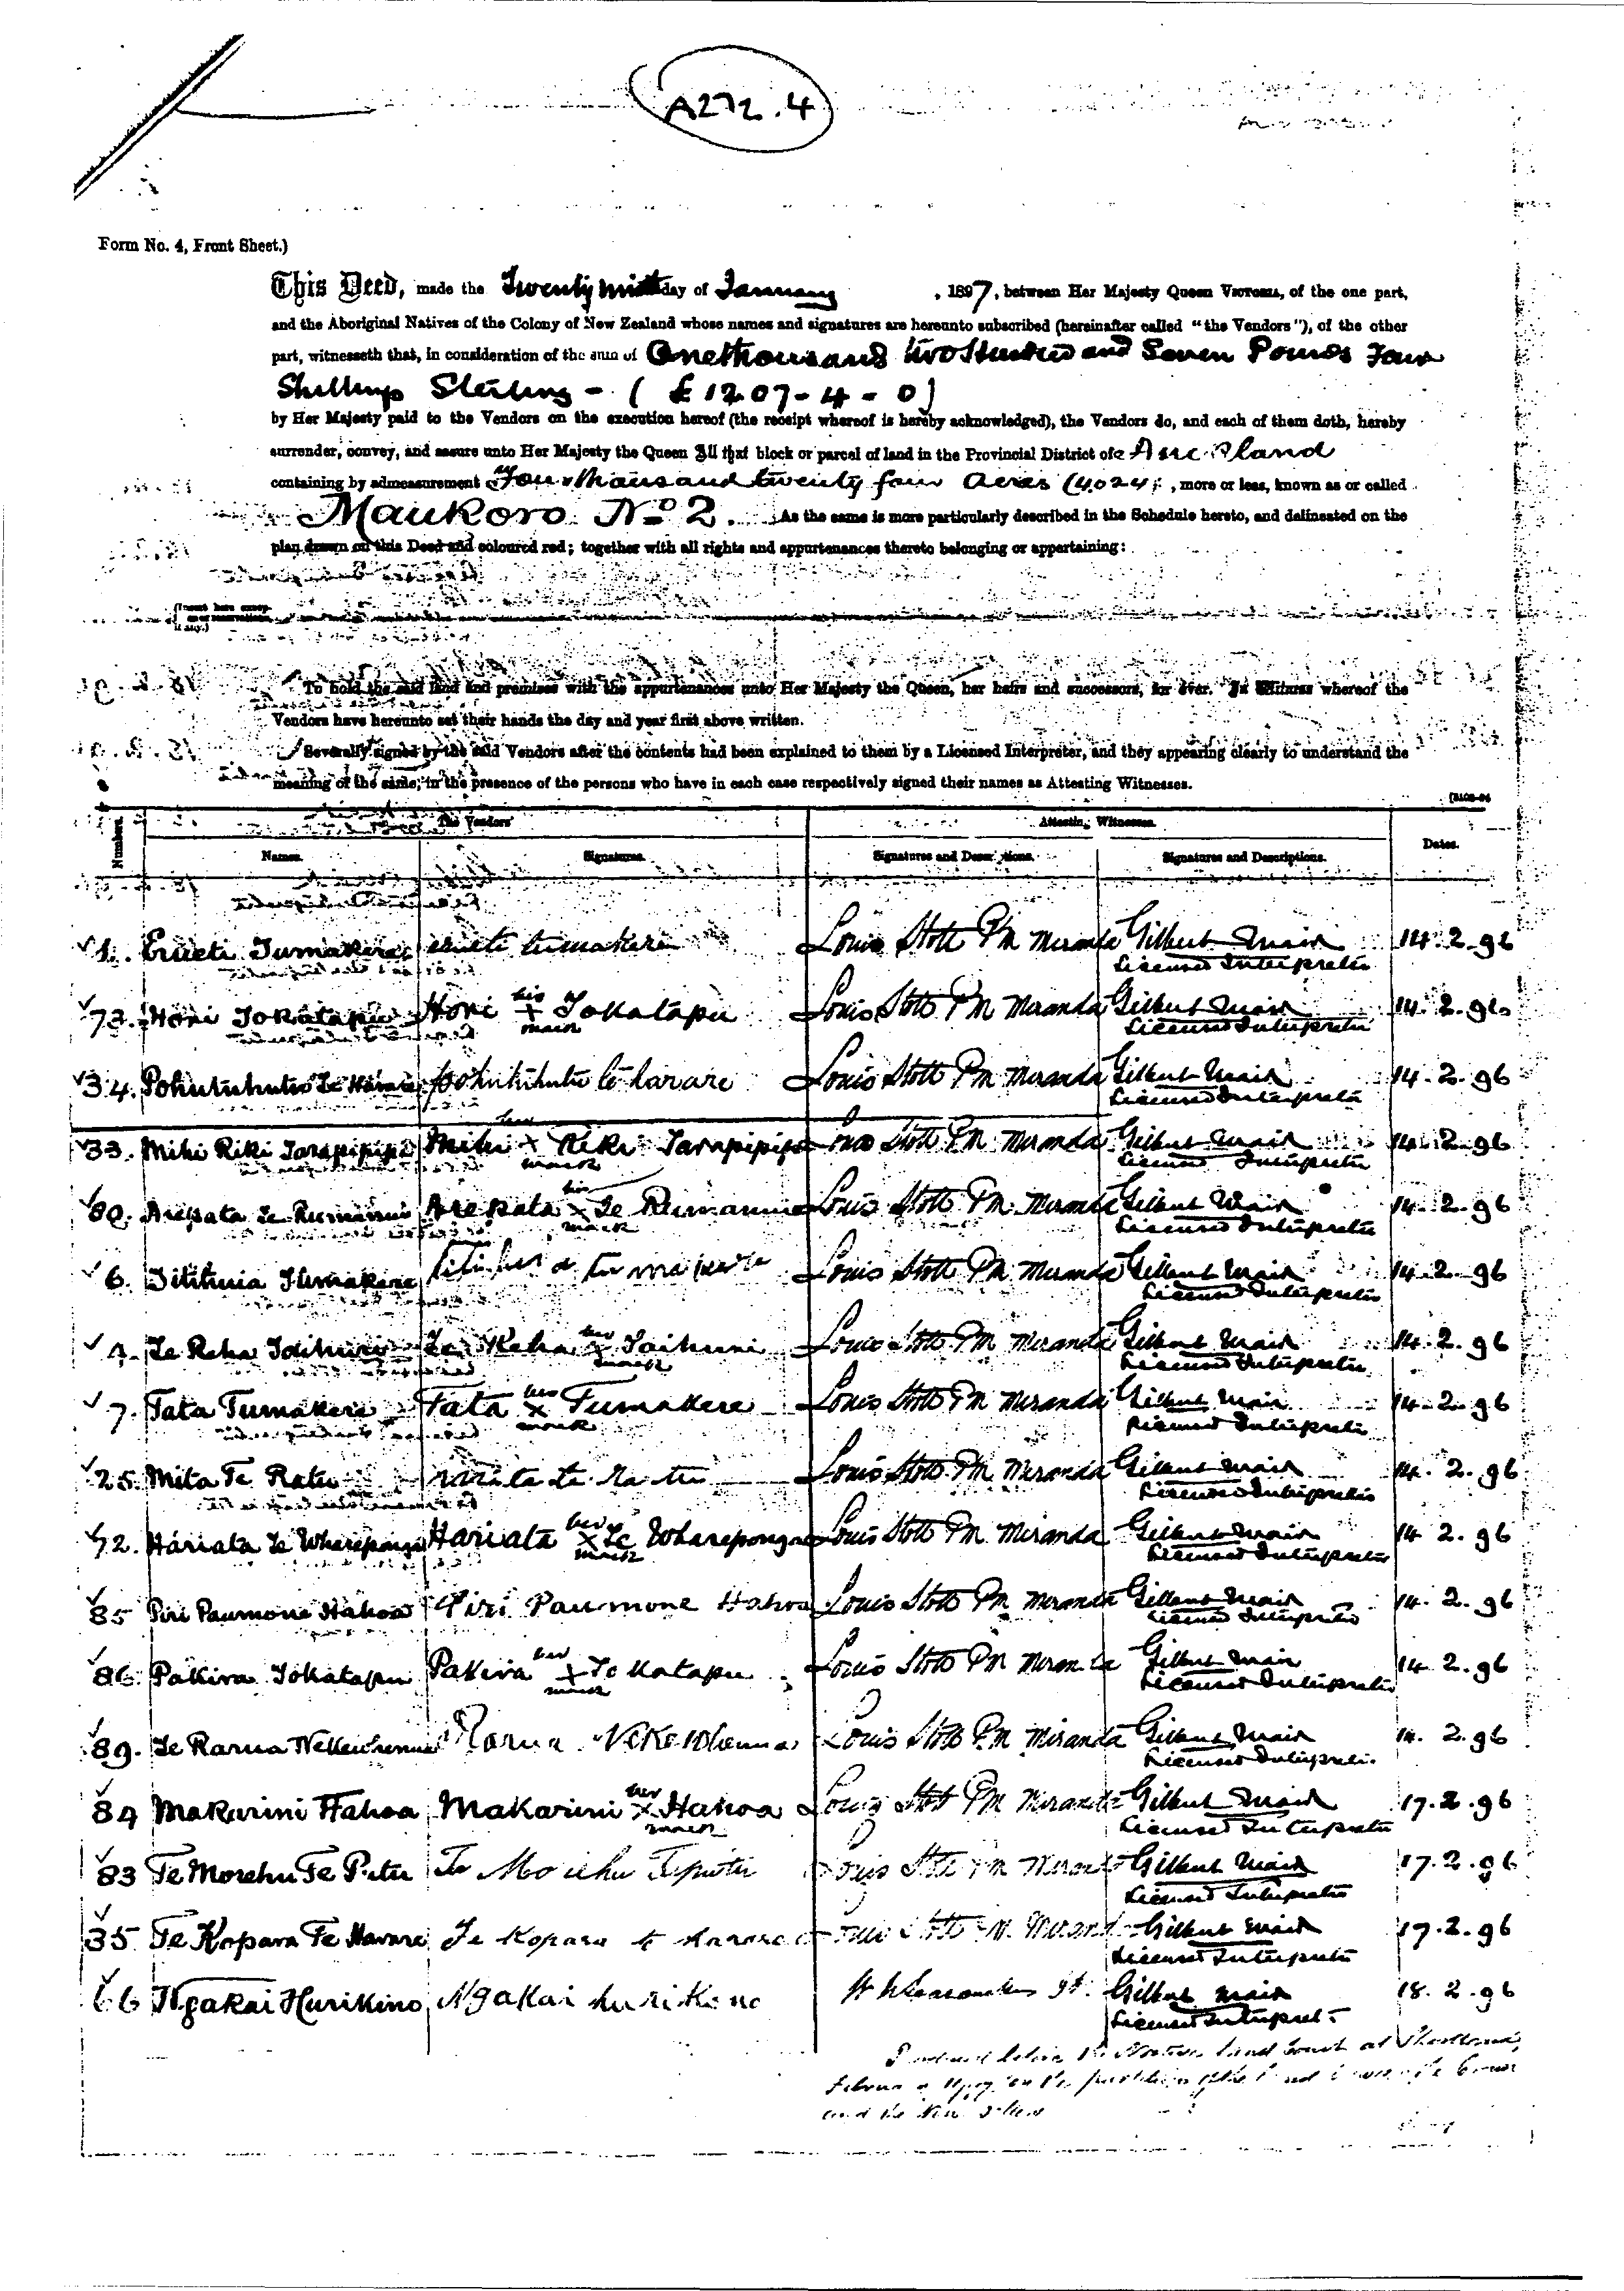 A272.4
Form No. 4, Front Sheet.)
This Deed, made the Twenty ninth day of January, 1897, between Her Majesty Queen VICTORIA, of the one part,
and the Aboriginal Natives of the Colony of New Zealand whose names and signatures are hereunto subscribed (hereinafter called "the Vendors"), of the other
part, witnesseth that, in consideration of the sum of One thousand two Hundred and Seven Pounds Four
Shillings Sterling - (£1207-4-0)
by Her Majesty paid to the Vendors on the execution hereof (the receipt whereof is hereby acknowledged), the Vendors do, and each of them doth, hereby
surrender, convey, and assure unto Her Majesty the Queen All that block or parcel of land in the Provincial District of Auckland
containing by admeasurement Four thousand twenty four Acres (4024), more or less, known as or called
Maukoro No 2. As the same is more particularly described in the Schedule hereto, and delineated on the
plan drawn on this Deed and coloured red; together with all rights and appurtenances thereto belonging or appertaining:
To hold the said land and premises with the appurtenances unto Her Majesty the Queen, her heirs and successors, for ever. In Witness whereof the
Vendors have hereunto set their hands the day and year first above written.
Severally signed by the said Vendors after the contents had been explained to them by a Licensed Interpreter, and they appearing clearly to understand the
meaning of the same, in the presence of the persons who have in each case respectively signed their names as Attesting Witnesses.
Numbers. The Vendors' Attesting Witnesses. Dates.
Names. Signatures. Signatures and Descriptions. Signatures and Descriptions.
1. Erueti Tumakere erueti tumakere Louis Stott PM Miranda Gilbert Mair Licensed Interpreter 14.2.96
73. Honi Tokatapu Honi his x mark Tokatapu Louis Stott PM Miranda Gilbert Mair Licensed Interpreter 14.2.96
34. Pohutuhutu Te Harare pohutuhutu te harare Louis Stott PM Miranda Gilbert Mair Licensed Interpreter 14.2.96
33. Mihi Riki Tarapipipi Mihi her x mark Riki Tarapipipi Louis Stott PM Miranda Gilbert Mair Licensed Interpreter 14.2.96
80. Arepata Te Rumanui Arepata his x mark Te Rumanui Louis Stott PM Miranda Gilbert Mair Licensed Interpreter 14.2.96
6. Titihuia Tumakere titihuia tumakere Louis Stott PM Miranda Gilbert Mair Licensed Interpreter 14.2.96
4. Te Reha Taihuri Te Reha her x mark Taihuri Louis Stott PM Miranda Gilbert Mair Licensed Interpreter 14.2.96
7. Tata Tumakere Tata her x mark Tumakere Louis Stott PM Miranda Gilbert Mair Licensed Interpreter 14.2.96
25. Mita Te Ratu mita te ratu Louis Stott PM Miranda Gilbert Mair Licensed Interpreter 14.2.96
72. Hariata Te Whareponga Hariata her x mark Te Whareponga Louis Stott PM Miranda Gilbert Mair Licensed Interpreter 14.2.96
85 Piri Paumone Hahoa Piri Paumone Hahoa Louis Stott PM Miranda Gilbert Mair Licensed Interpreter 14.2.96
86. Pakira Tokatapu Pakira her x mark Tokatapu Louis Stott PM Miranda Gilbert Mair Licensed Interpreter 14.2.96
89. Te Rarua Wekewhenua Rarua Wekewhenua Louis Stott P.M Miranda Gilbert Mair Licensed Interpreter 14.2.96
84 Makarini Hahoa Makarini her x mark Hahoa Louis Stott PM Miranda Gilbert Mair Licensed Interpreter 17.2.96
83 Te Morehu Te Putu Te Morehu Teputu Louis Stott PM Miranda Gilbert Mair Licensed Interpreter 17.2.96
35 Te Kopara Te Harare Te Kopara te Harare Louis Stott PM Miranda Gilbert Mair Licensed Interpreter 17.2.96
66 Ngakai Hurikino Ngakai hurikino Gilbert Mair Licensed Interpreter 18.2.96
Produced before the Native Land Court at
and the